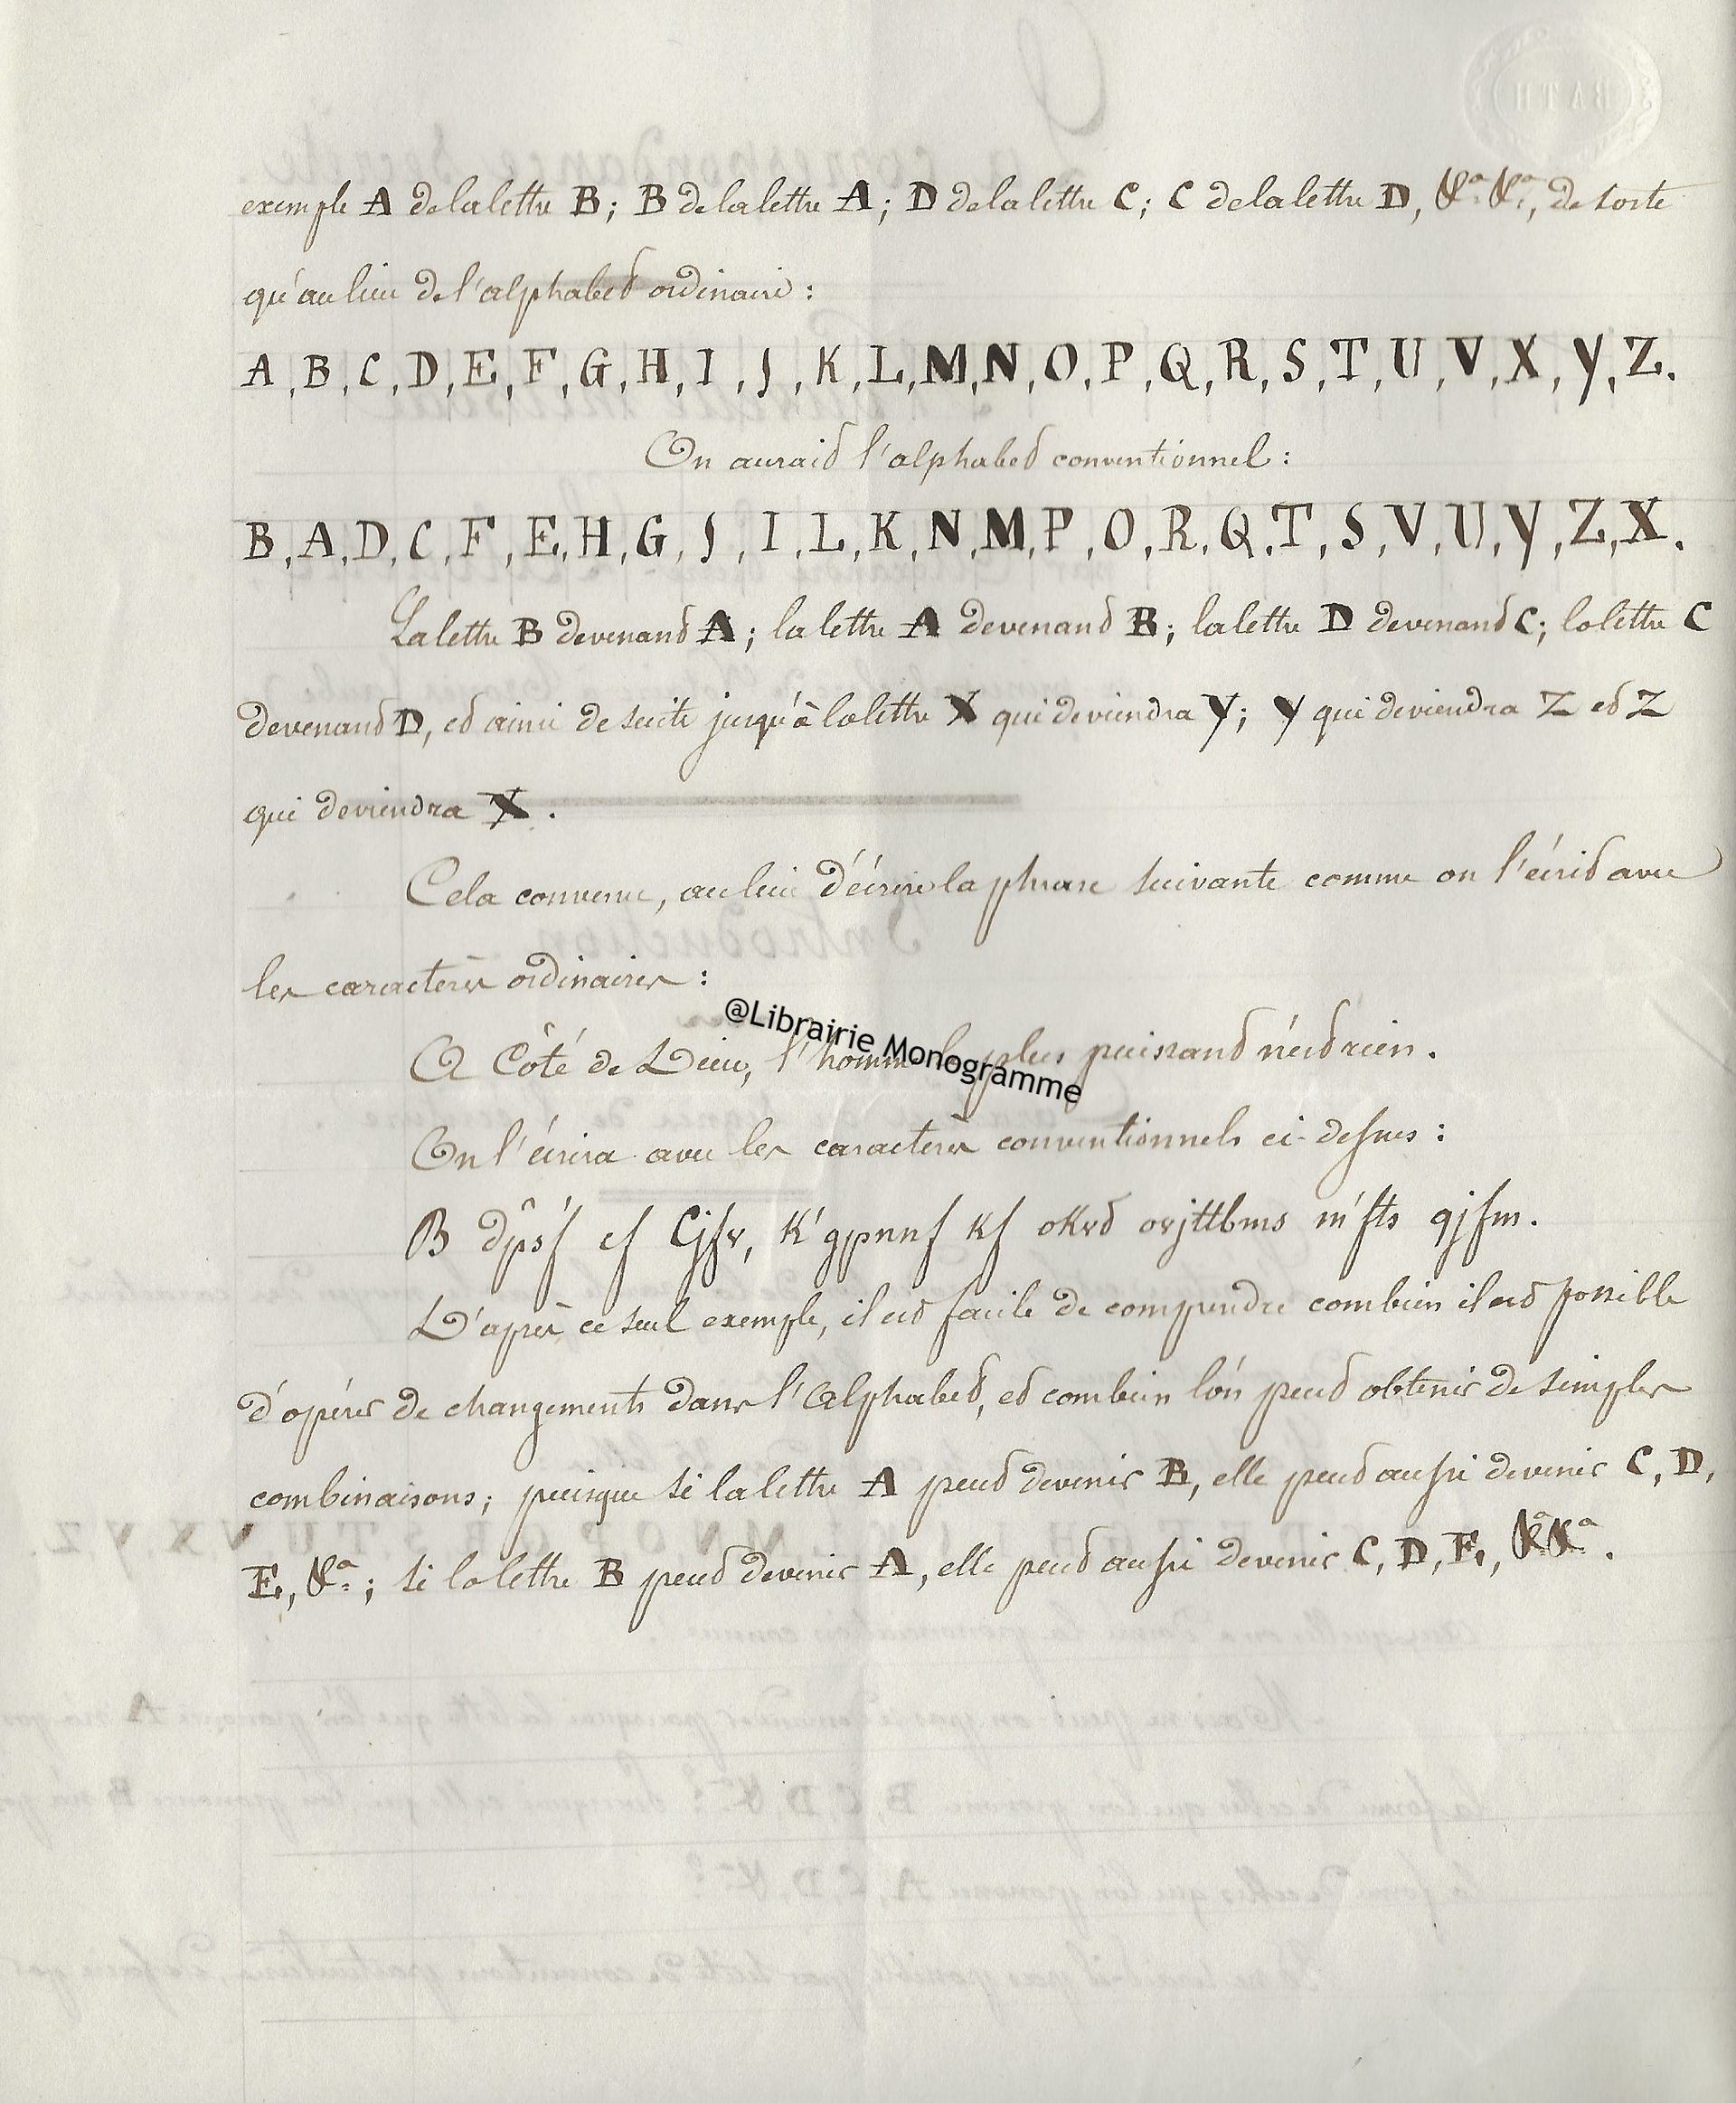 exemple A de la lettre B; B de la lettre A; D de la lettre C; C de la lettre D, &a. &a., de sorte
qu'au lieu de l'alphabet ordinaire :
A, B, C, D, E, F, G, H, I, J, K, L, M, N, O, P, Q, R, S, T, U, V, X, Y, Z.
On aurait l'alphabet conventionnel :
B, A, D, C, F, E, H, G, J, I, L, K, N, M, P, O, R, Q, T, S, V, U, Y, Z, X.
La lettre B devenant A; la lettre A devenant B; la lettre D devenant C; la lettre C
devenant D, et ainsi de suite jusqu'à la lettre X qui deviendra Y; Y qui deviendra Z et Z
qui deviendra X.
Cela convenu, au lieu d'écrire la phrase suivante comme on l'écrit avec
les caractères ordinaires :
@Librairie Monogramme
A Côté de Dieu, l'homme le plus puissant n'est rien.
On l'écrira avec les caractères conventionnels ci-dessus :
B dp̂sf́ cf Cjfv, k'gpnnf kf okvd ovjttbms m'fts qjfm.
D'après ce seul exemple, il est facile de comprendre combien il est possible
d'opérer de changements dans l'Alphabet, et combien l'on peut obtenir de simples
combinaisons; puisque si la lettre A peut devenir B, elle peut aussi devenir C, D,
E, &a.; si la lettre B peut devenir A, elle peut aussi devenir C, D, E, &a &a.
BATH